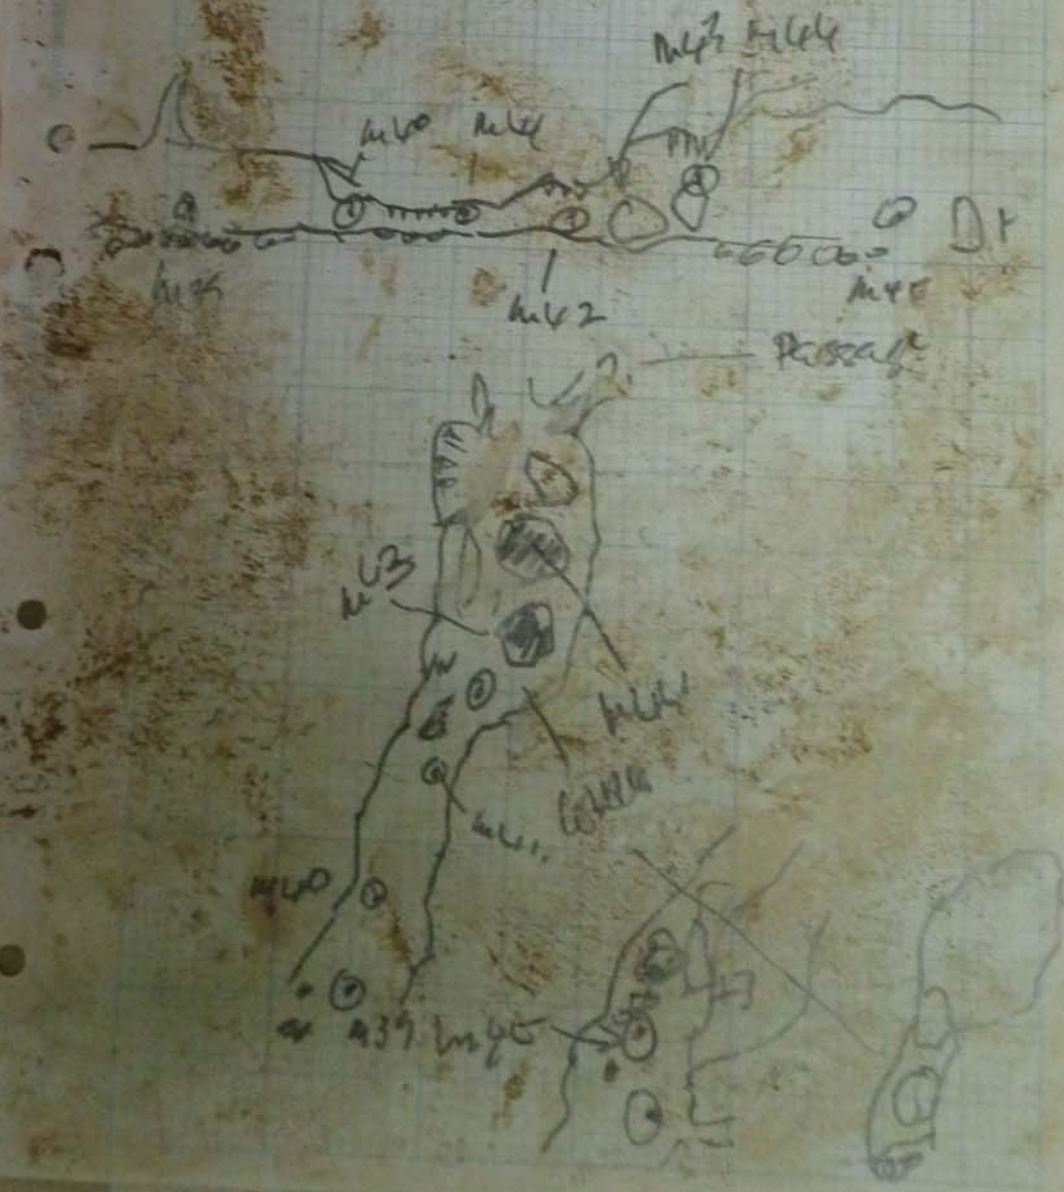 m43 m44
m40 m41
m39
m42
m45
Passage
m43
m44
m41.
m40
m39 m45